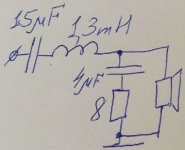 15µF
1,3mH
4µF
8